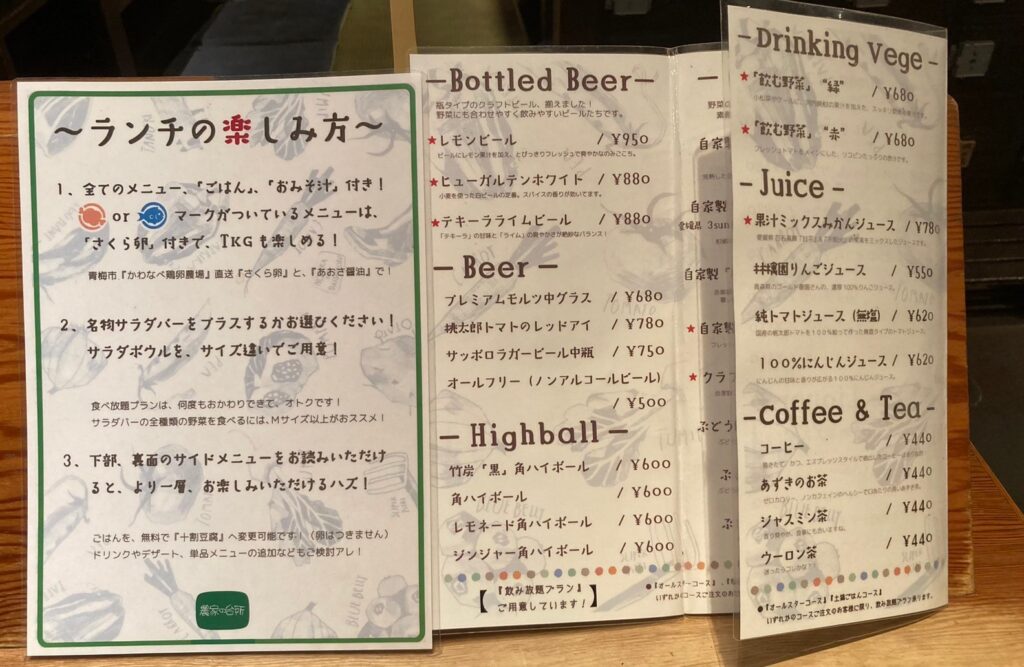 ～ランチの楽しみ方～
1、全てのメニュー、『ごはん』、『おみそ汁』付き！
or マークがついているメニューは、
『さくら卵』付きで、TKGも楽しめる！
青梅市『かわなべ鶏卵農場』直送『さくら卵』と、『あおさ醤油』で！
2、名物サラダバーをプラスするかお選びください！
サラダボウルを、サイズ違いでご用意！
食べ放題プランは、何度もおかわりできて、オトクです！
サラダバーの全種類の野菜を食べるには、Mサイズ以上がおススメ！
3、下部、裏面のサイドメニューをお読みいただけ
ると、より一層、お楽しみいただけるハズ！
ごはんを、無料で『十割豆腐』へ変更可能です！（卵はつきません）
ドリンクやデザート、単品メニューの追加などもご検討アレ！
農家の台所
－Bottled Beer－
瓶タイプのクラフトビール、揃えました！
野菜にも合わせやすく飲みやすいビールたちです。
★レモンビール / ¥950
ビールにレモン果汁を加え、とびっきりフレッシュで爽やかなのみごこち。
★ヒューガルデンホワイト / ¥880
小麦を使った白ビールの定番。スパイスの香りが効いてます。
★テキーラライムビール / ¥880
「テキーラ」の甘味と「ライム」の爽やかさが絶妙なバランス！
－Beer－
プレミアムモルツ中グラス / ¥680
桃太郎トマトのレッドアイ / ¥780
サッポロラガービール中瓶 / ¥750
オールフリー（ノンアルコールビール）
/ ¥500
－Highball－
竹炭『黒』角ハイボール / ¥600
角ハイボール / ¥600
レモネード角ハイボール / ¥600
ジンジャー角ハイボール / ¥600
【『飲み放題プラン』
ご用意しています！】
野菜の
自家製
自家製
愛媛県 3sun
自家製『
★自家
★クラフ
ぶどう
●『オールスターコース』、『
いずれかのコースご注文のお
－Drinking Vege－
★『飲む野菜』“緑” / ¥680
★『飲む野菜』“赤” / ¥680
フレッシュトマトをメインにした、リコピンたっぷりの赤です。
－Juice－
★果汁ミックスみかんジュース / ¥780
林檎園りんごジュース / ¥550
純トマトジュース（無塩） / ¥620
国産の桃太郎トマトを100％絞って作った無塩タイプのトマトジュース。
100％にんじんジュース / ¥620
にんじんの甘味と香りが広がる100％にんじんジュース。
－Coffee & Tea－
コーヒー / ¥440
あずきのお茶 / ¥440
ゼロカロリー、ノンカフェインのヘルシーで口あたりの良いあずき茶。
ジャスミン茶 / ¥440
ウーロン茶 / ¥440
迷ったらコレかな！！
●『オールスターコース』『土鍋ごはんコース』
いずれかのコースご注文のお客様に限り、飲み放題プラン承ります。